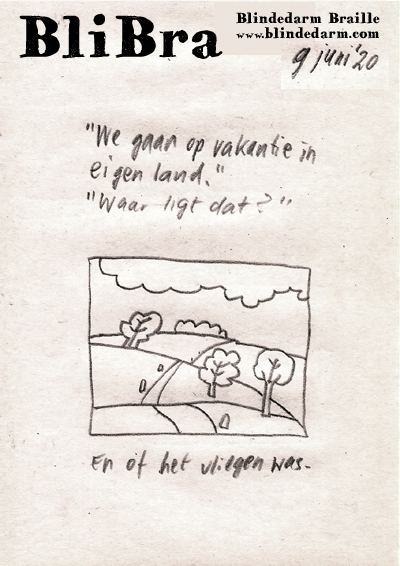 BliBra
Blindedarm Braille
www.blindedarm.com
9 juni '20
"We gaan op vakantie in
eigen land."
"Waar ligt dat?"
En of het vliegen was.